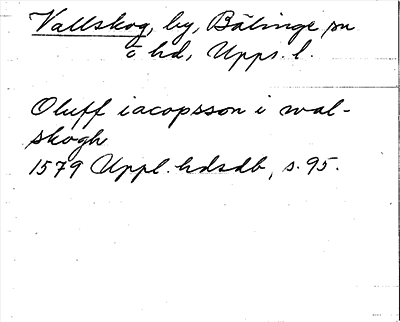 Vallskog, by, Bälinge sn
o hd, Upps. l.
Oluff iacopsson i wal-
skogh
1579 Uppl. hdsdb, s. 95.